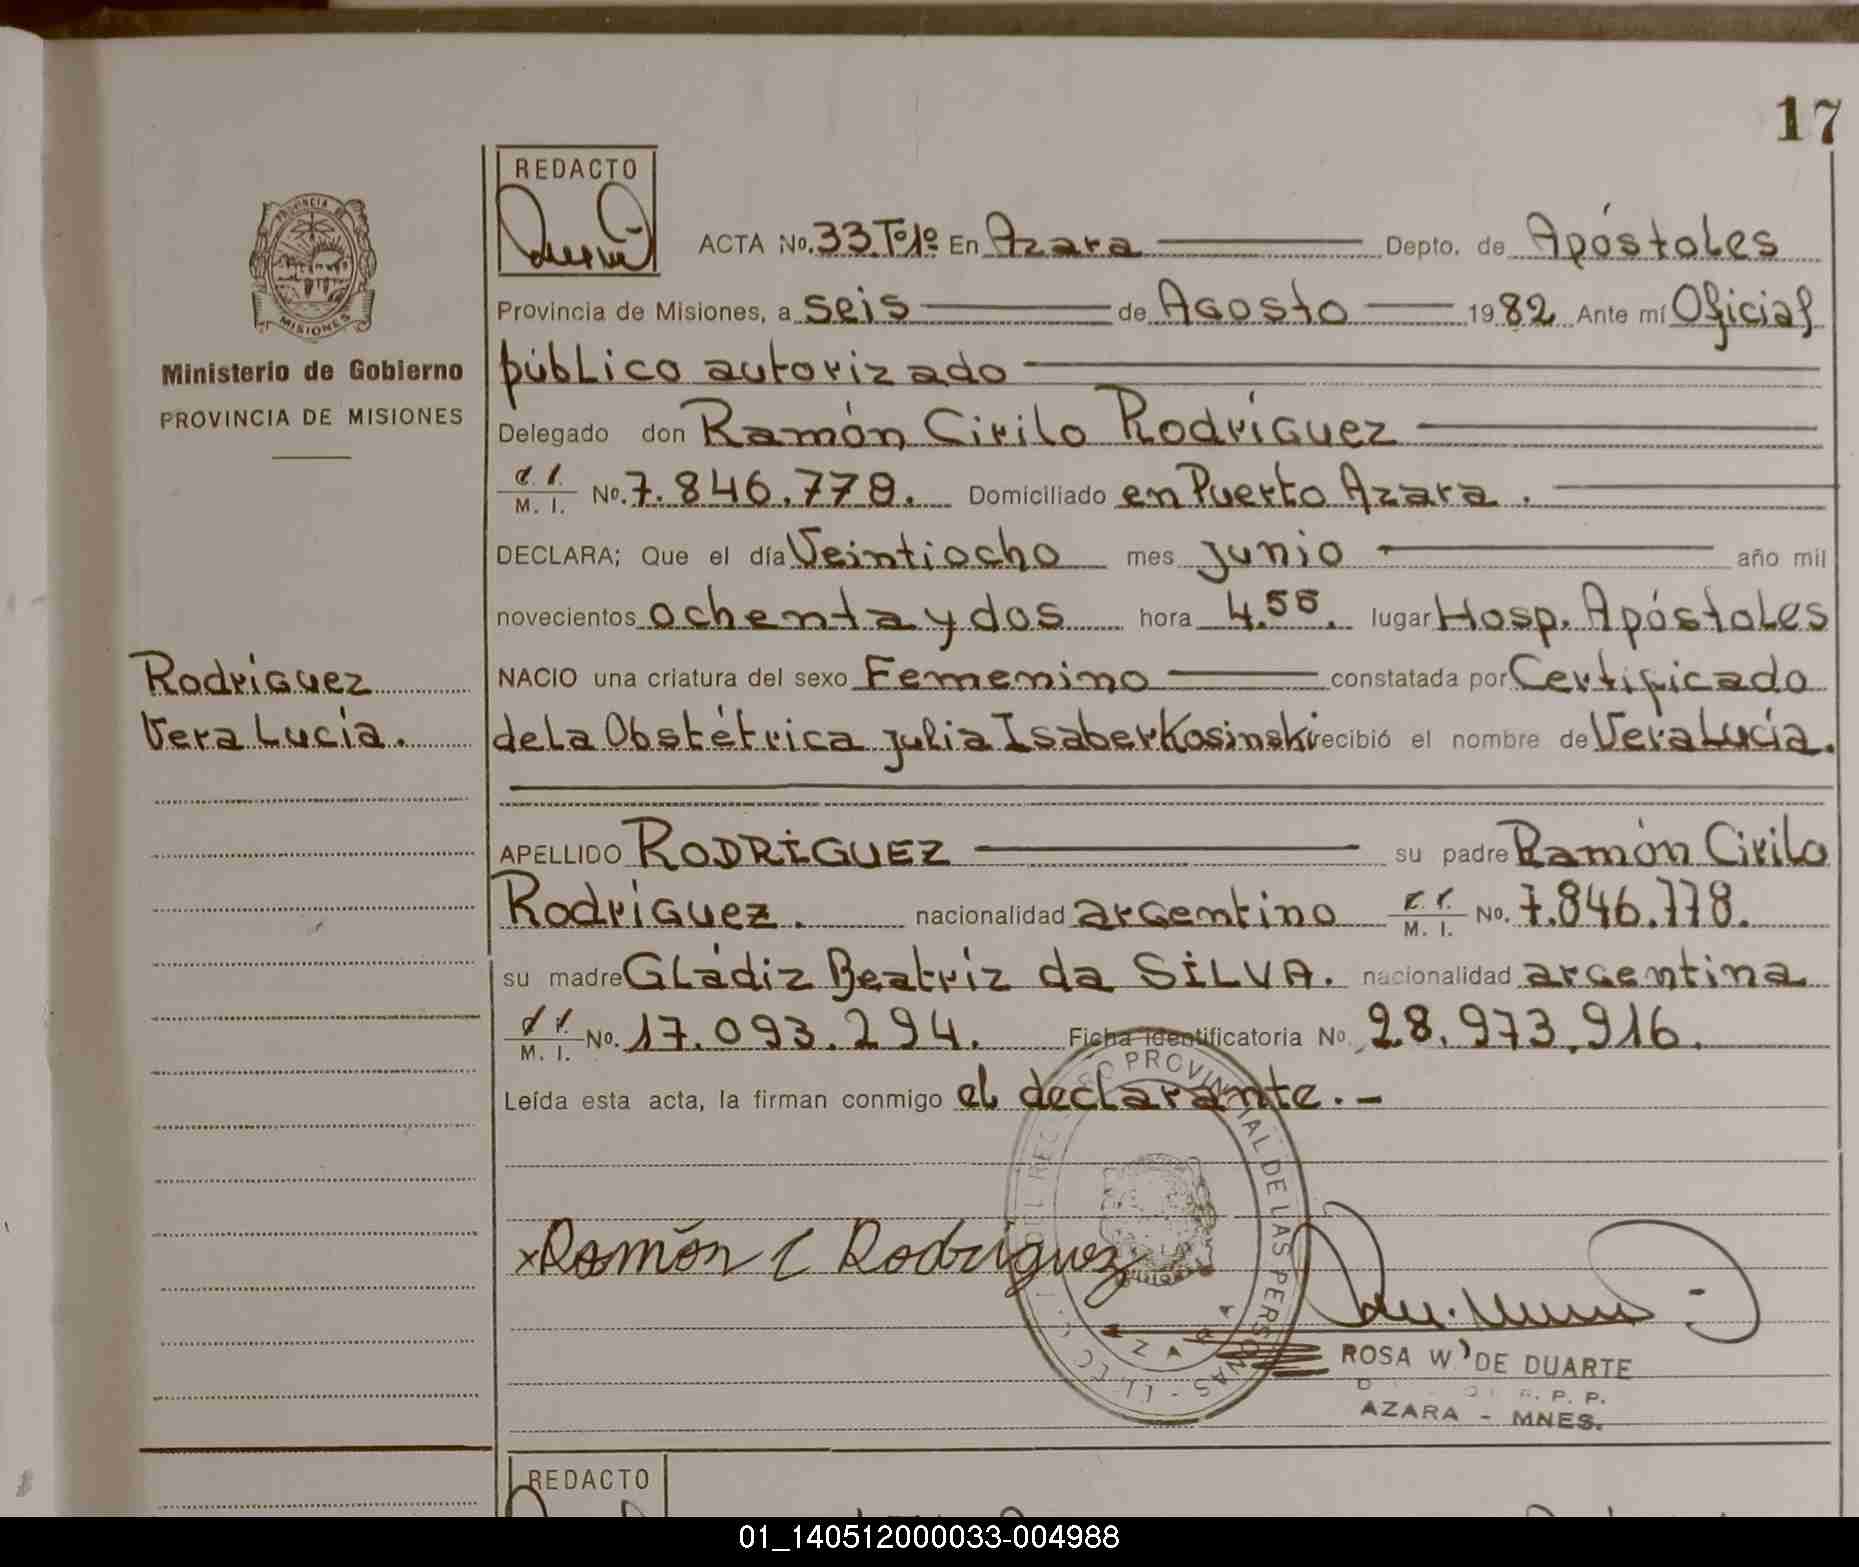 17
REDACTO
PROVINCIA DE
MISIONES
Ministerio de Gobierno
PROVINCIA DE MISIONES
Rodríguez
Vera Lucía.
ACTA No. 33.Tº1º En Azara Depto. de Apóstoles
Provincia de Misiones, a seis de Agosto 1982 Ante mí Oficial
público autorizado
Delegado don Ramón Cirilo Rodríguez
M. I. No. 7.846.778. Domiciliado en Puerto Azara.
DECLARA; Que el día Veintiocho mes junio año mil
novecientos ochenta y dos hora 4.55. lugar Hosp. Apóstoles
NACIO una criatura del sexo Femenino constatada por Certificado
de la Obstétrica julia Isabel Kosinski recibió el nombre de Vera Lucía.
APELLIDO RODRÍGUEZ su padre Ramón Cirilo
Rodríguez. nacionalidad argentino M. I. No. 7.846.778.
su madre Gládiz Beatriz da SILVA. nacionalidad argentina
M. I. No. 17.093.294. Ficha identificatoria No. 28.973.916.
Leída esta acta, la firman conmigo el declarante.-
PROVINCIAL DE LAS PERSONAS
AZARA
x Ramón C Rodríguez
ROSA W. DE DUARTE
R. P. P.
AZARA - MNES.
REDACTO
01_140512000033-004988